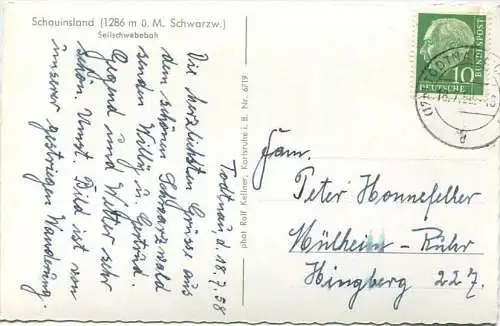 Schauinsland (1286 m ü. M. Schwarzw.)
Seilschwebebah
Todtnau d 18.7.58
Die herzlichsten Grüsse aus
dem schönen Schwarzwald
senden Willy u. Gertrud.
Gegend und Wetter sehr
schön. Umst. Bild ist von
unserer gestriegen Wanderung.
phot Rolf Kellner, Karlsruhe i. B. Nr. 6719
10
DEUTSCHE
BUNDESPOST
TODTNAU
Fam.
Peter Honnefeller
Mülheim-Ruhr
Hingberg 227.